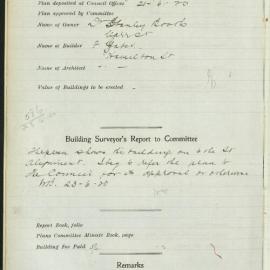 Plan deposited at Council Office 21-6-
Plan approved by Committee
Name of Owner Dr Stanley Booth
Carr St
Name of Builder F
Hamilton St
Name of Architect
Value of Buildings to be erected
Building Surveyor's Report to Committee
The plan shows the building on to the St
Alignment. I beg to refer the plan to
the Council for its approval or otherwise
23-6-
Report Book, folio
Plans Committee Minute Book, page
Building Fee Paid
Remarks